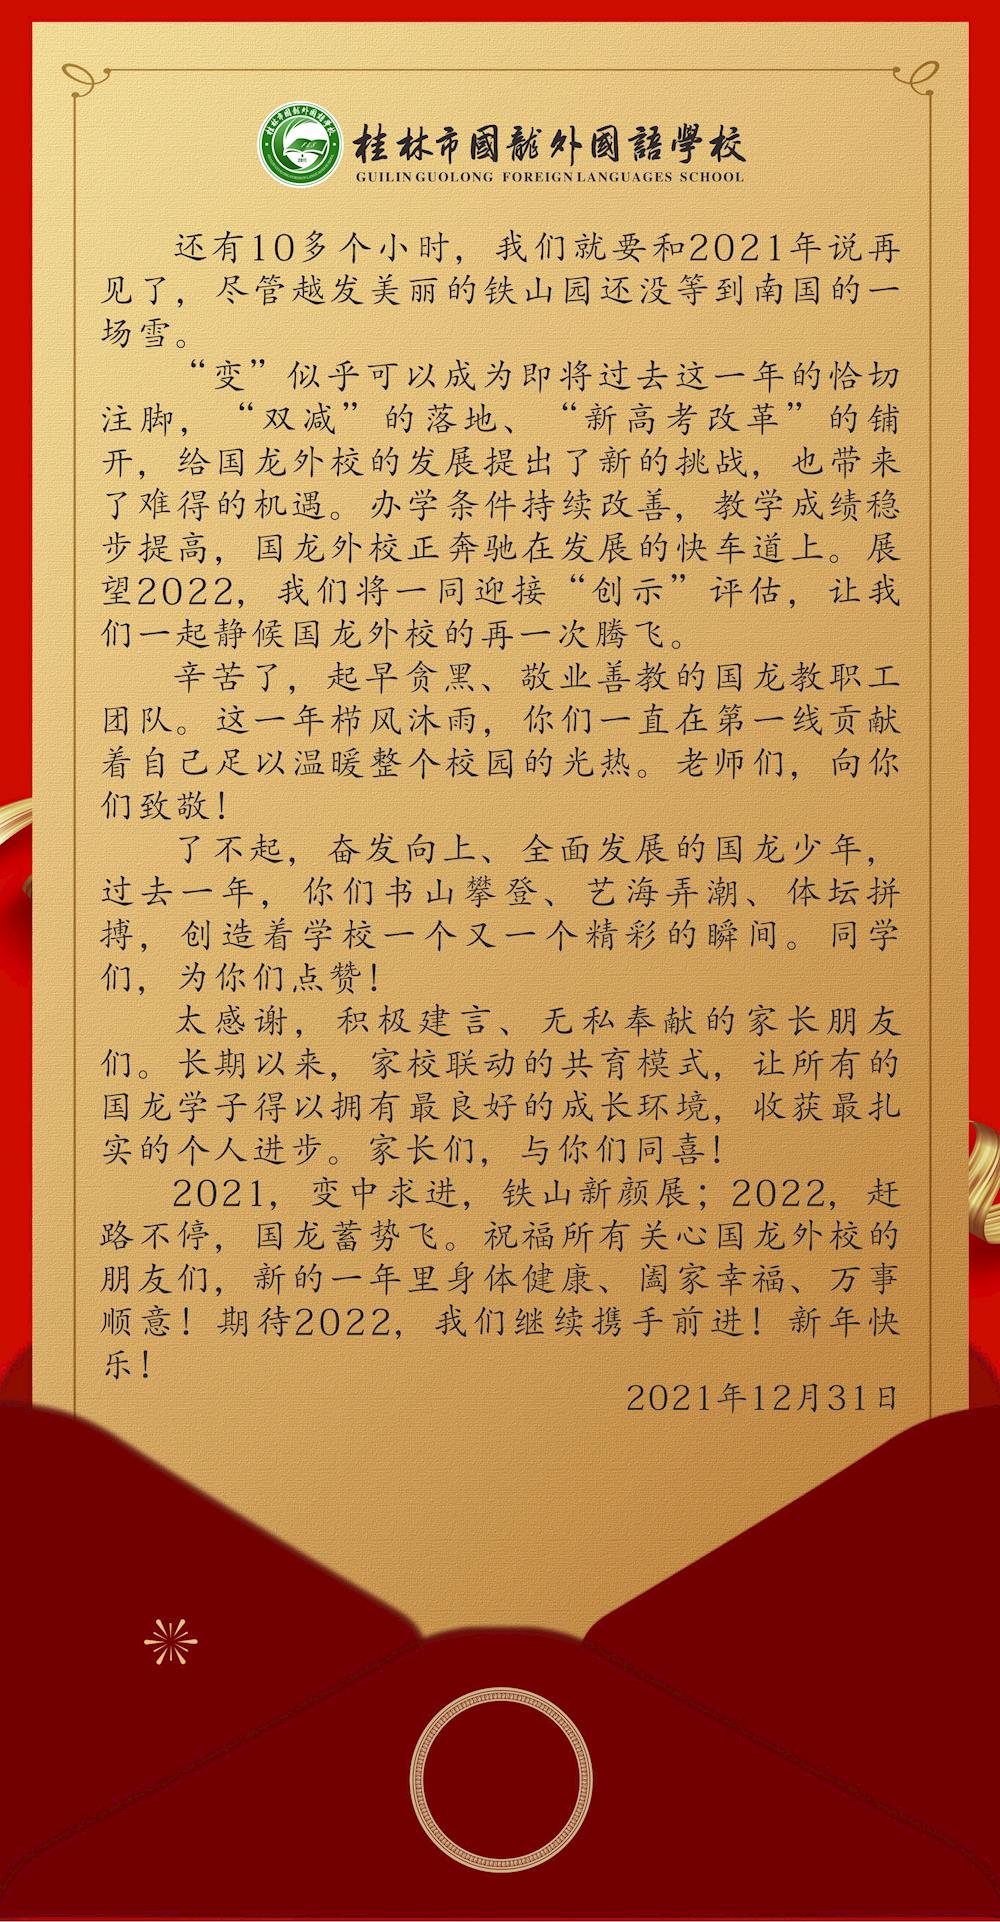 桂林市國龍外國語學校
GUILIN GUOLONG FOREIGN LANGUAGES SCHOOL
还有10多个小时，我们就要和2021年说再
见了，尽管越发美丽的铁山园还没等到南国的一
场雪。
“变”似乎可以成为即将过去这一年的恰切
注脚，“双减”的落地、“新高考改革”的铺
开，给国龙外校的发展提出了新的挑战，也带来
了难得的机遇。办学条件持续改善，教学成绩稳
步提高，国龙外校正奔驰在发展的快车道上。展
望2022，我们将一同迎接“创示”评估，让我
们一起静候国龙外校的再一次腾飞。
辛苦了，起早贪黑、敬业善教的国龙教职工
团队。这一年栉风沐雨，你们一直在第一线贡献
着自己足以温暖整个校园的光热。老师们，向你
们致敬！
了不起，奋发向上、全面发展的国龙少年，
过去一年，你们书山攀登、艺海弄潮、体坛拼
搏，创造着学校一个又一个精彩的瞬间。同学
们，为你们点赞！
太感谢，积极建言、无私奉献的家长朋友
们。长期以来，家校联动的共育模式，让所有的
国龙学子得以拥有最良好的成长环境，收获最扎
实的个人进步。家长们，与你们同喜！
2021，变中求进，铁山新颜展；2022，赶
路不停，国龙蓄势飞。祝福所有关心国龙外校的
朋友们，新的一年里身体健康、阖家幸福、万事
顺意！期待2022，我们继续携手前进！新年快
乐！
2021年12月31日